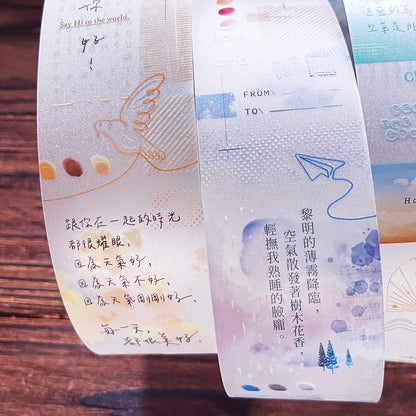 你
Say Hi to the world.
好
!
跟你在一起的時光
都很耀眼,
因為天氣好,
因為天氣不好,
因為天氣剛剛好.
每一天,
都很美好.
FROM\
TO\
黎明的薄霧降臨,
空氣散發著樹木花香,
輕撫我熟睡的臉龐。